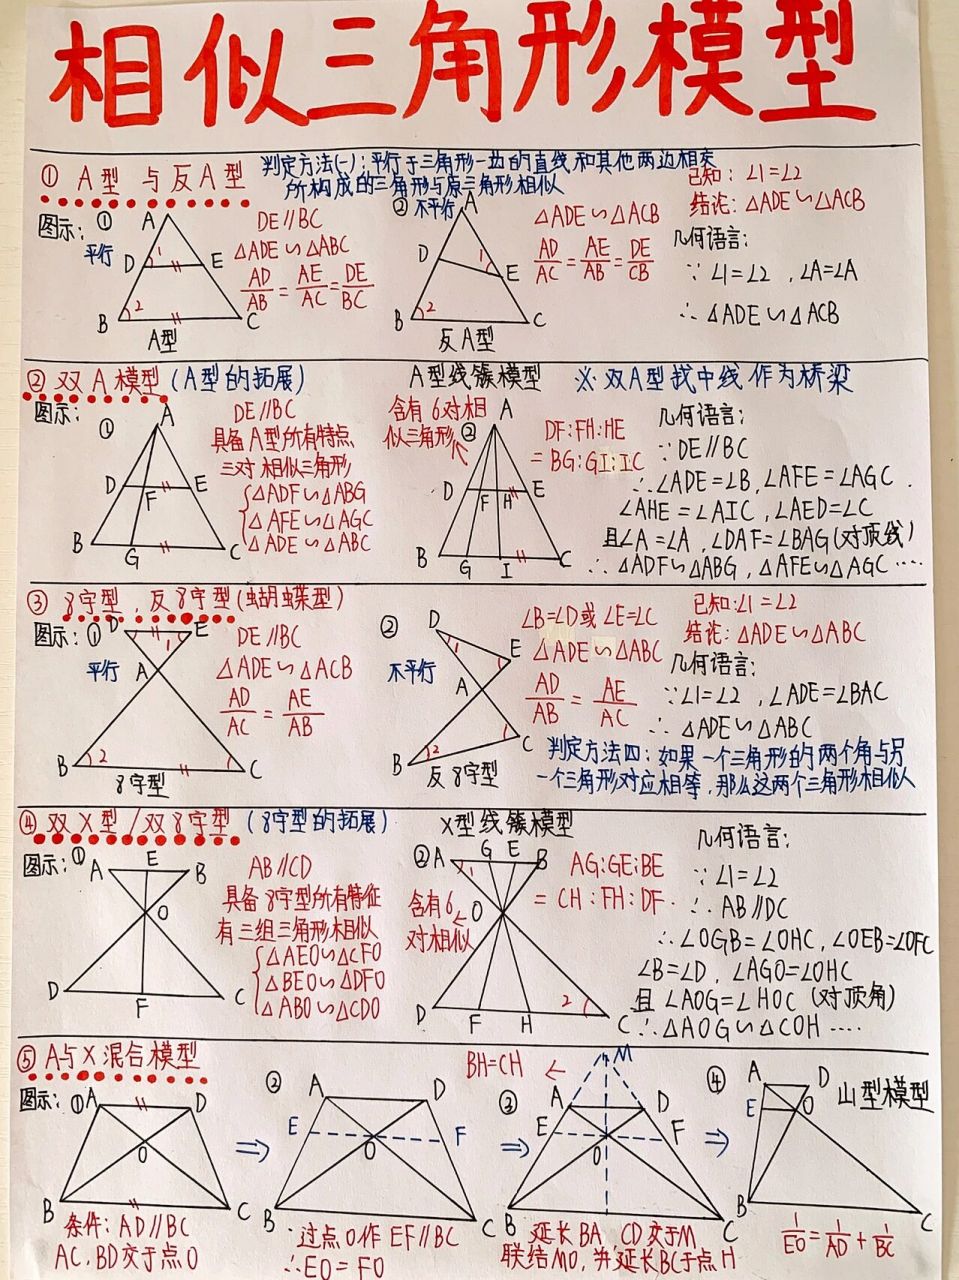 相似三角形模型
① A型 与反A型
判定方法(一):平行于三角形一边的直线和其他两边相交
所构成的三角形与原三角形相似
图示:
①
平行
A
D
1
E
B
2
C
A型
DE∥BC
△ADE∽△ABC
AD/AB = AE/AC = DE/BC
② 不平行
A
D
1
E
B
2
C
反A型
△ADE∽△ACB
AD/AC = AE/AB = DE/CB
已知: ∠1=∠2
结论: △ADE∽△ACB
几何语言:
∵ ∠1=∠2 ,∠A=∠A
∴ △ADE∽△ACB
② 双A模型 (A型的拓展)
图示:
①
A
D
F
E
B
G
C
DE∥BC
具备A型所有特点,
三对相似三角形
△ADF∽△ABG
△AFE∽△AGC
△ADE∽△ABC
A型线簇模型
含有6对相
似三角形
②
A
D
F
H
E
B
G
I
C
DF:FH:HE
= BG:GI:IC
※ 双A型找中线作为桥梁
几何语言:
∵DE∥BC
∴∠ADE=∠B,∠AFE=∠AGC.
∠AHE=∠AIC,∠AED=∠C
且∠A=∠A,∠DAF=∠BAG(对顶线)
∴△ADF∽△ABG,△AFE∽△AGC ....
③ 8字型,反8字型(蝴蝶型)
图示:
①
平行
D
E
1
A
B
2
C
8字型
DE∥BC
△ADE∽△ACB
AD/AC = AE/AB
②
不平行
D
1
E
A
B
2
C
反8字型
∠B=∠D或∠E=∠C
△ADE∽△ABC
AD/AB = AE/AC
已知:∠1=∠2
结论: △ADE∽△ABC
几何语言:
∵∠1=∠2 ,∠ADE=∠BAC
∴ △ADE∽△ABC
判定方法四:如果一个三角形的两个角与另
一个三角形对应相等,那么这两个三角形相似
④ 双X型/双8字型 (8字型的拓展)
图示:
①
A
E
B
O
D
F
C
AB∥CD
具备8字型所有特征
有三组三角形相似
△AEO∽△CFO
△BEO∽△DFO
△ABO∽△CDO
X型线簇模型
②
A
G
E
B
1
O
含有6
对相似
D
F
H
2
C
AG:GE:BE
= CH:FH:DF.
几何语言:
∵ ∠1=∠2
∴ AB∥DC
∴∠OGB=∠OHC,∠OEB=∠OFC
∠B=∠D, ∠AGO=∠OHC
且 ∠AOG=∠HOC (对顶角)
∴△AOG∽△COH ....
⑤ A与X混合模型
图示:
①
A
D
O
B
C
条件: AD∥BC
AC,BD交于点O
⇒
②
A
D
E
F
O
B
C
过点O作EF∥BC
∴EO=FO
⇒
BH=CH
←
③
M
A
D
E
F
O
B
C
延长BA,CD交于M
联结MO,并延长BC于点H
⇒
④
A
D
E
O
B
C
山型模型
1/EO = 1/AD + 1/BC